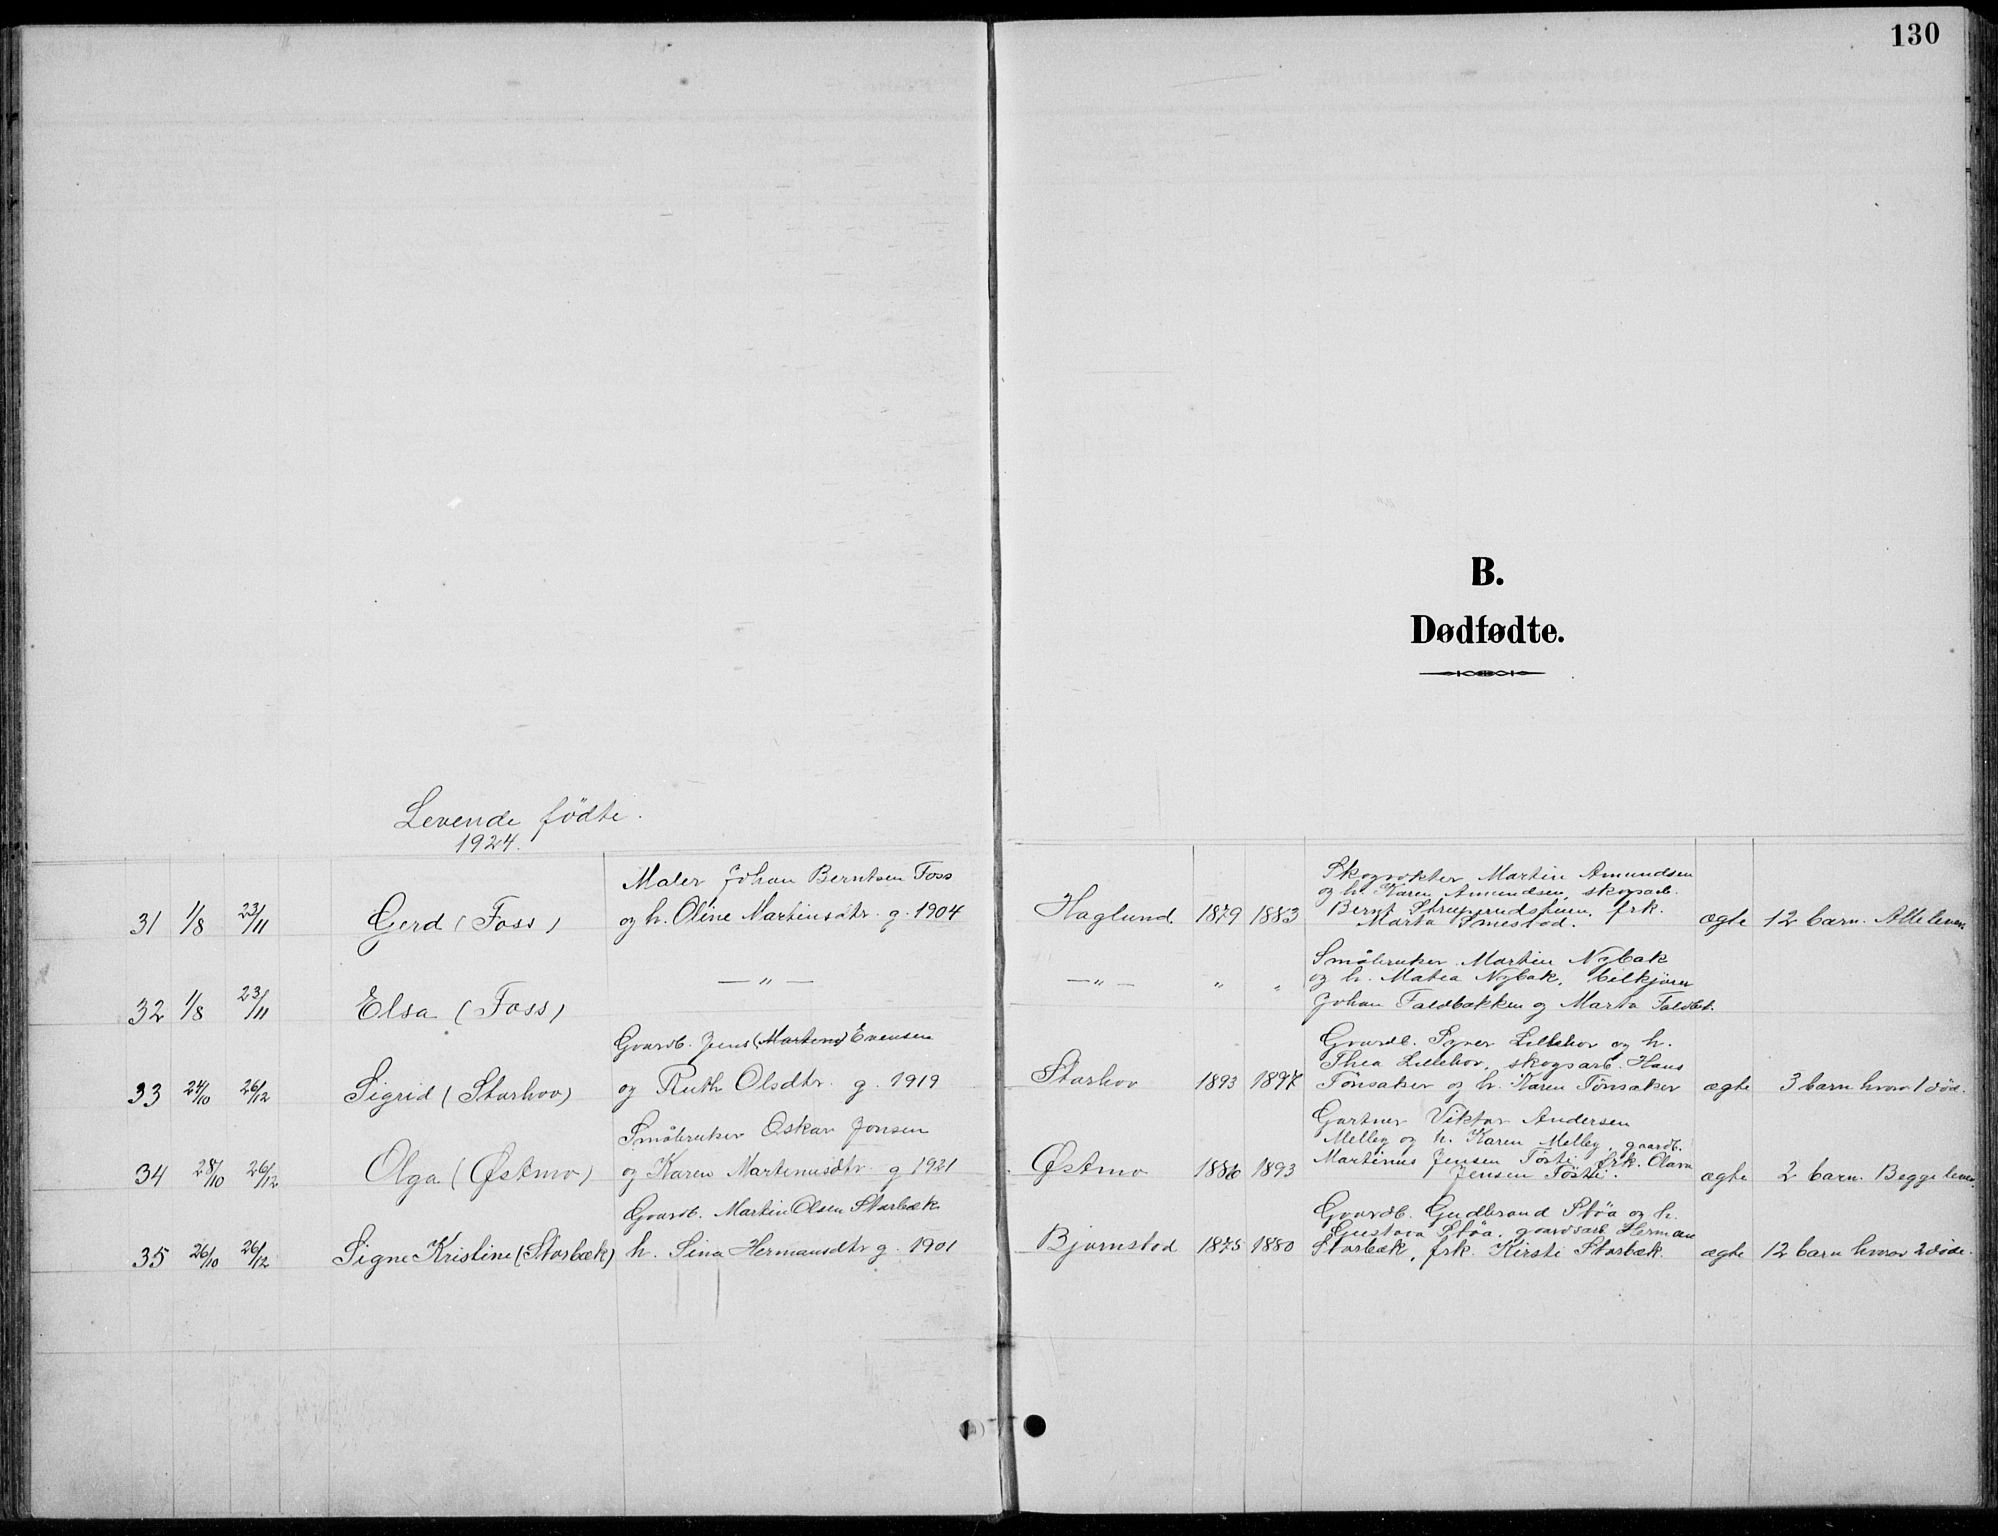 130
B.
Dødfødte.
Levende fødte.
1924.
31 1/8 23/11 Gerd (Foss) Maler Johan Berntsen Foss
og h. Oline Martinsdtr. g. 1904
Haglund 1879 1883 Skogvokter Martin Amundsen
og h. Karen Amundsen, skogsarb.
Bernt frk.
Marta Smestad.
ægte 12 barn. Alle lever.
32 1/8 23/11 Elsa (Foss) — " —
— " — " " Småbruker Martin Nybak
og h. Matea Nybak, bilkjører
Johan Faldbakken og Marta Faldbk.
33 24/10 26/12 Sigrid (Storhov) Gaardb. Jens (Martens) Evensen
og Ruth Olsdtr. g. 1919
Storhov 1893 1897 Gaardb. Syver Lillehov og h.
Thea Lillehov, skogsarb. Hans
Tönsaker og h. Karen Tönsaker
ægte 3 barn hvorav 1 död.
34 28/10 26/12 Olga (Østmo) Småbruker Oskar Jonsen
og Karen Martinusdtr. g 1921
Østmo 1886 1893 Gartner Viktor Andersen
Melby og h. Karen Melby, gaardb.
Martinus Jensen frk. Olava
Jensen
ægte 2 barn. Begge lever.
35 26/10 26/12 Signe Kristine (Storbæk) Gaardb. Martin Olsen Storbæk
h. Sina Hermansdtr g. 1901
Bjørnstad 1875 1880 Gaardb. Gudbrand Støa og h.
Gustava Støa, gaardsarb. Herman
Storbæk, frk. Kirsti Storbæk.
ægte 12 barn hvorav 2 døde.